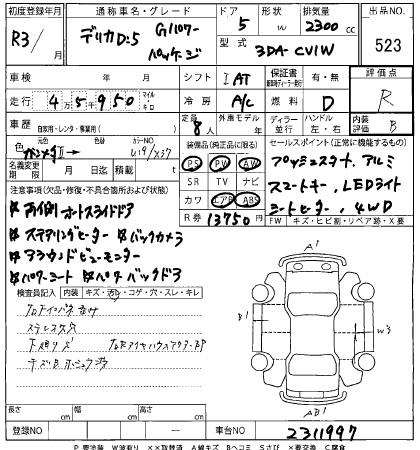 初度登録年月 通称車名・グレード ドア 形状 排気量 出品NO.
R3/ 月 デリカD:5 Gパワー パッケージ 5 W 2300 cc 523
型式 3DA-CV1W
車検 年 月 シフト IAT 保証書 有・無 評価点
走行 45950 マイル キロ 冷房 A/C 燃料 D R
車歴 自家用・レンタ・事業用( ) 定員 8人 ディーラー並行 ハンドル 左・右 内装 B
色 ガンメタⅡ→ カラーNO U19/X37 装備品(純正品に限る) セールスポイント(正常に機能するもの)
名義変更期限 月 日 積載 t PS PW AW プッシュスタート、アルミ
注意事項(欠品・修復・不具合箇所および状態) SR TV ナビ スマートキー、LEDライト
カワ エアB ABS シートヒーター、4WD
両側オートスライドドア R券 13750円 FW キズ・ヒビ・リペア跡・X要
ステアリングヒーター バックカメラ
アラウンドビューモニター
パワーシート パワーバックドア
検査員記入 内装 キズ・汚レ・コゲ・穴・スレ・キレ
A1
B1
W3
AB1
長さ cm 幅 cm 高さ cm
登録NO ー 車台NO 2311997
P要塗装 W波有り ××取替済 A線キズ Bヘコミ Sさび ×要交換 C腐食